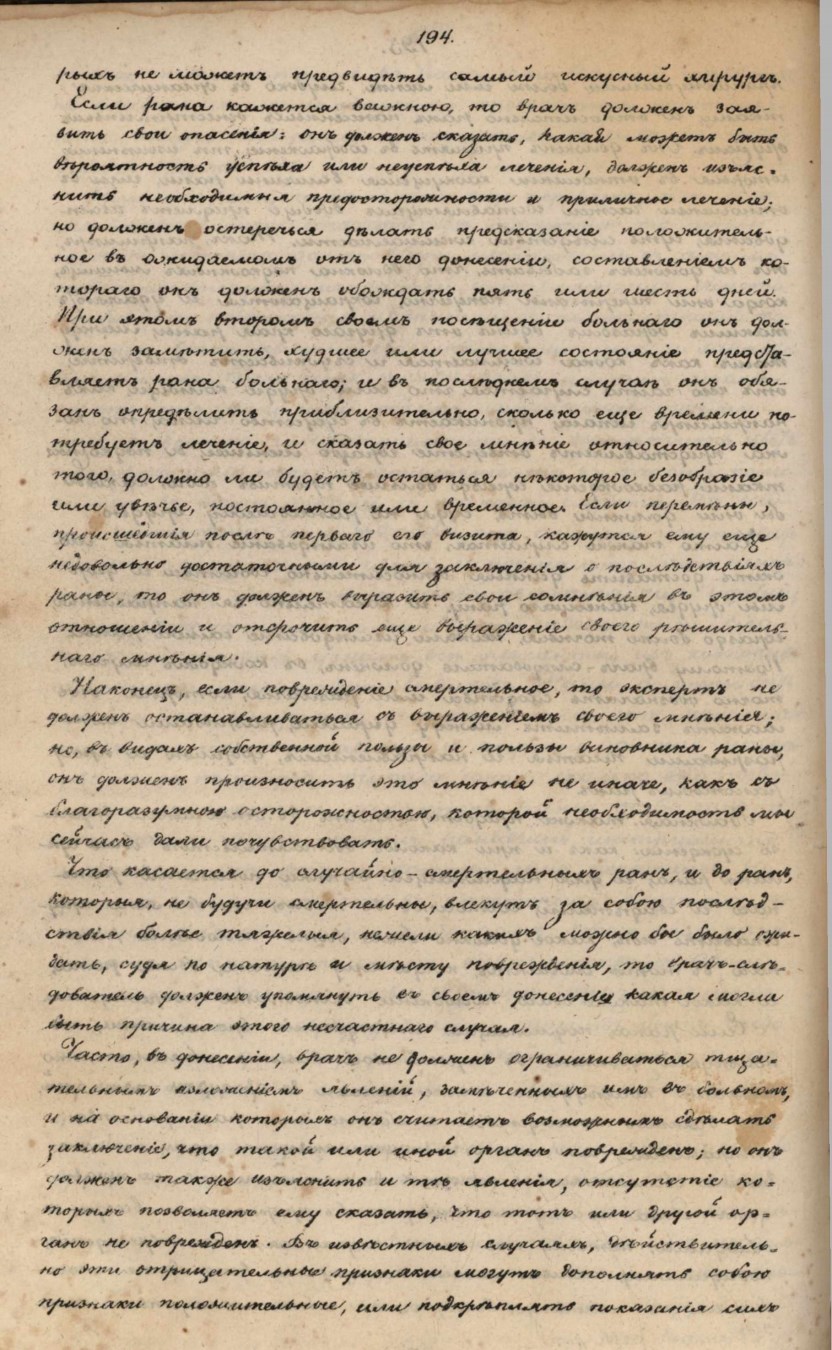 194.
рыхъ не можетъ предвидѣть самый искусный хирургъ.
Если рана кажется важною, то врачъ долженъ зая-
вить свои опасенія: онъ долженъ сказать, какая можетъ быть
вѣроятность успѣха или неуспѣха леченія, долженъ изъяс-
нить необходимыя предосторожности и приличное леченіе;
но долженъ остеречься дѣлать предсказаніе положитель-
ное въ ожидаемомъ отъ него донесеніи, составленіемъ ко-
тораго онъ долженъ обождать пять или шесть дней.
При этомъ второмъ своемъ посѣщеніи больнаго онъ дол-
женъ замѣтить, худшее или лучшее состояніе предста-
вляетъ рана больнаго; и въ послѣднемъ случаѣ онъ обя-
занъ опредѣлить приблизительно, сколько еще времени по-
требуетъ леченіе, и сказать свое мнѣніе относительно
того, должно ли будетъ остаться нѣкоторое безобразіе
или увѣчье, постоянное или временное. Если перемѣны,
происшедшія послѣ перваго его визита, кажутся ему еще
недовольно достаточными для заключенія о послѣдствіяхъ
раны, то онъ долженъ выразить свои сомнѣнія въ этомъ
отношеніи и отсрочить еще выраженіе своего рѣшитель-
наго мнѣнія.
Наконецъ, если поврежденіе смертельное, то экспертъ не
долженъ останавливаться съ выраженіемъ своего мнѣнія;
но, въ видахъ собственной пользы и пользы виновника раны,
онъ долженъ произносить это мнѣніе не иначе, какъ съ
благоразумною осторожностью, которой необходимость мы
сейчасъ дали почувствовать.
Что касается до случайно-смертельныхъ ранъ, и до ранъ,
которыя, не будучи смертельны, влекутъ за собою послѣд-
ствія болѣе тяжелыя, нежели какихъ можно бы было ожи-
дать, судя по натурѣ и мѣсту поврежденія, то врачъ-слѣ-
дователь долженъ упомянуть въ своемъ донесеніи какая могла
быть причина этого несчастнаго случая.
Часто, въ донесеніи, врачъ не долженъ ограничиваться тща-
тельнымъ изложеніемъ явленій, замѣченныхъ имъ въ больномъ,
и на основаніи которыхъ онъ считаетъ возможнымъ сдѣлать
заключеніе, что такой или иной органъ поврежденъ; но онъ
долженъ также изъяснить и тѣ явленія, отсутствіе ко-
торыхъ позволяетъ ему сказать, что тотъ или другой ор-
ганъ не поврежденъ. Въ извѣстныхъ случаяхъ, дѣйствитель-
но эти отрицательные признаки могутъ дополнять собою
признаки положительные, или подкрѣплять показанія сихъ